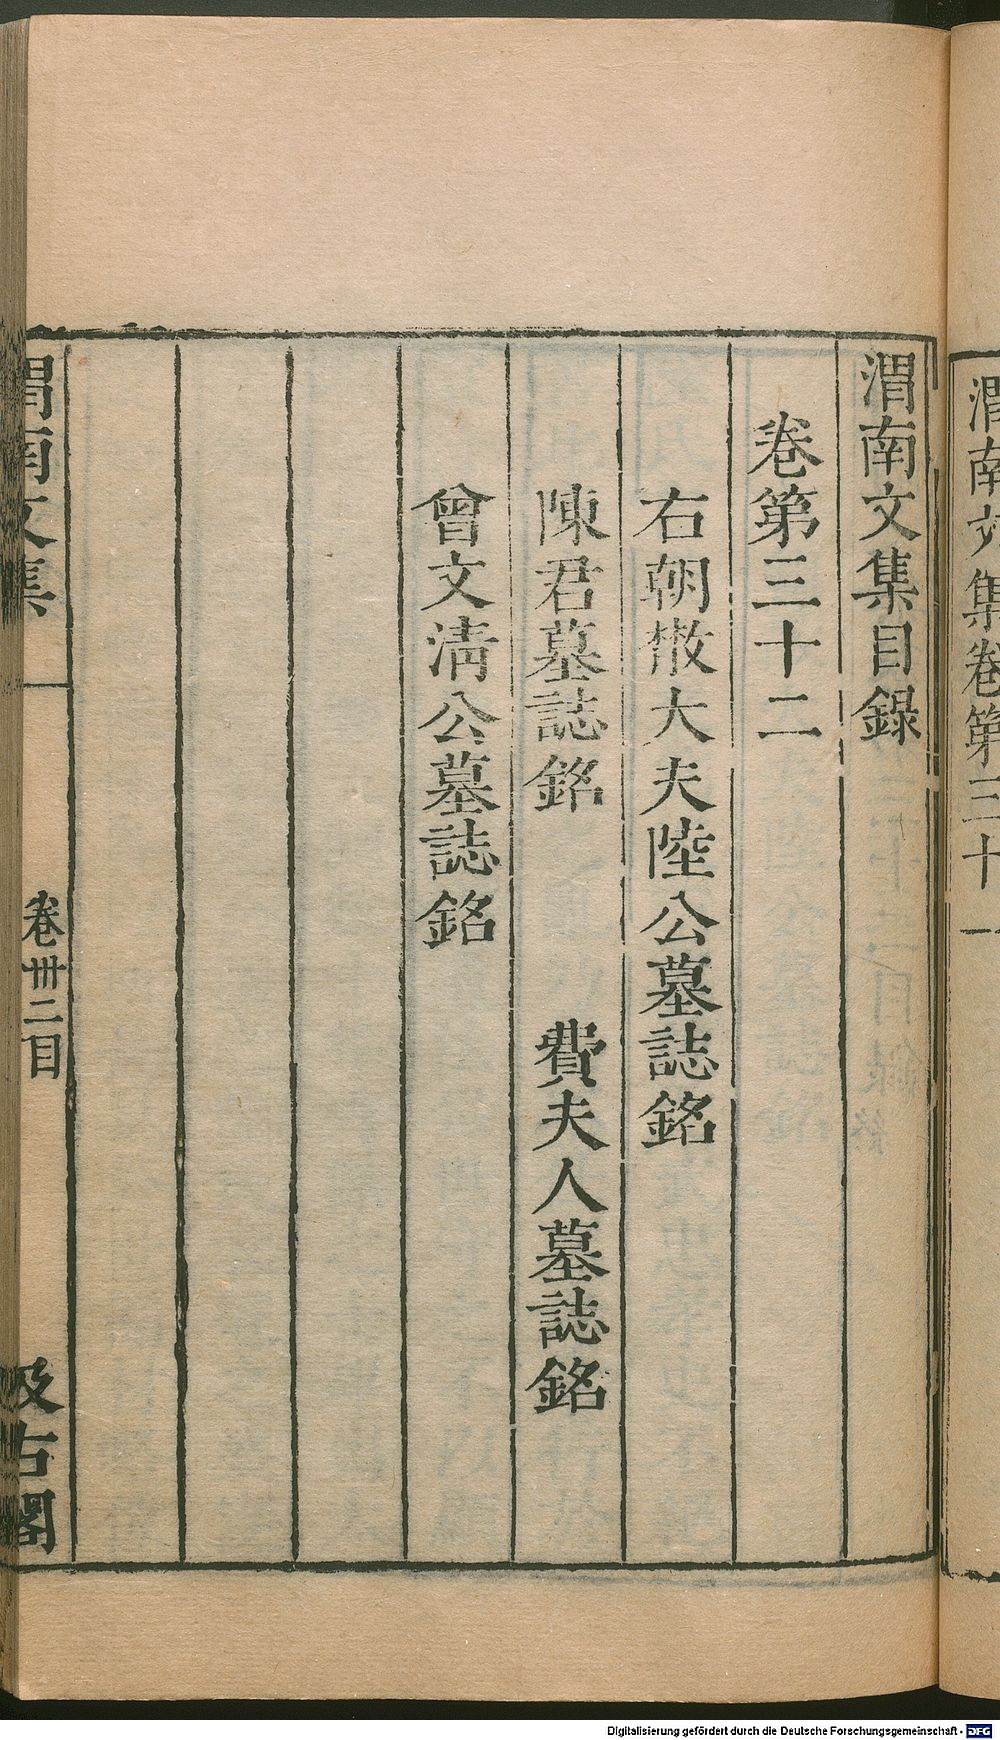 渭南文集卷第三十
渭南文集目錄
卷第三十二
右朝散大夫陸公墓誌銘
陳君墓誌銘 費夫人墓誌銘
曾文淸公墓誌銘
渭南文集 卷卌二目 汲古閣
Digitalisierung gefördert durch die Deutsche Forschungsgemeinschaft - DFG